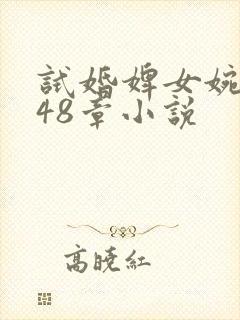 試婚婢女婉
48章小説
高曉紅